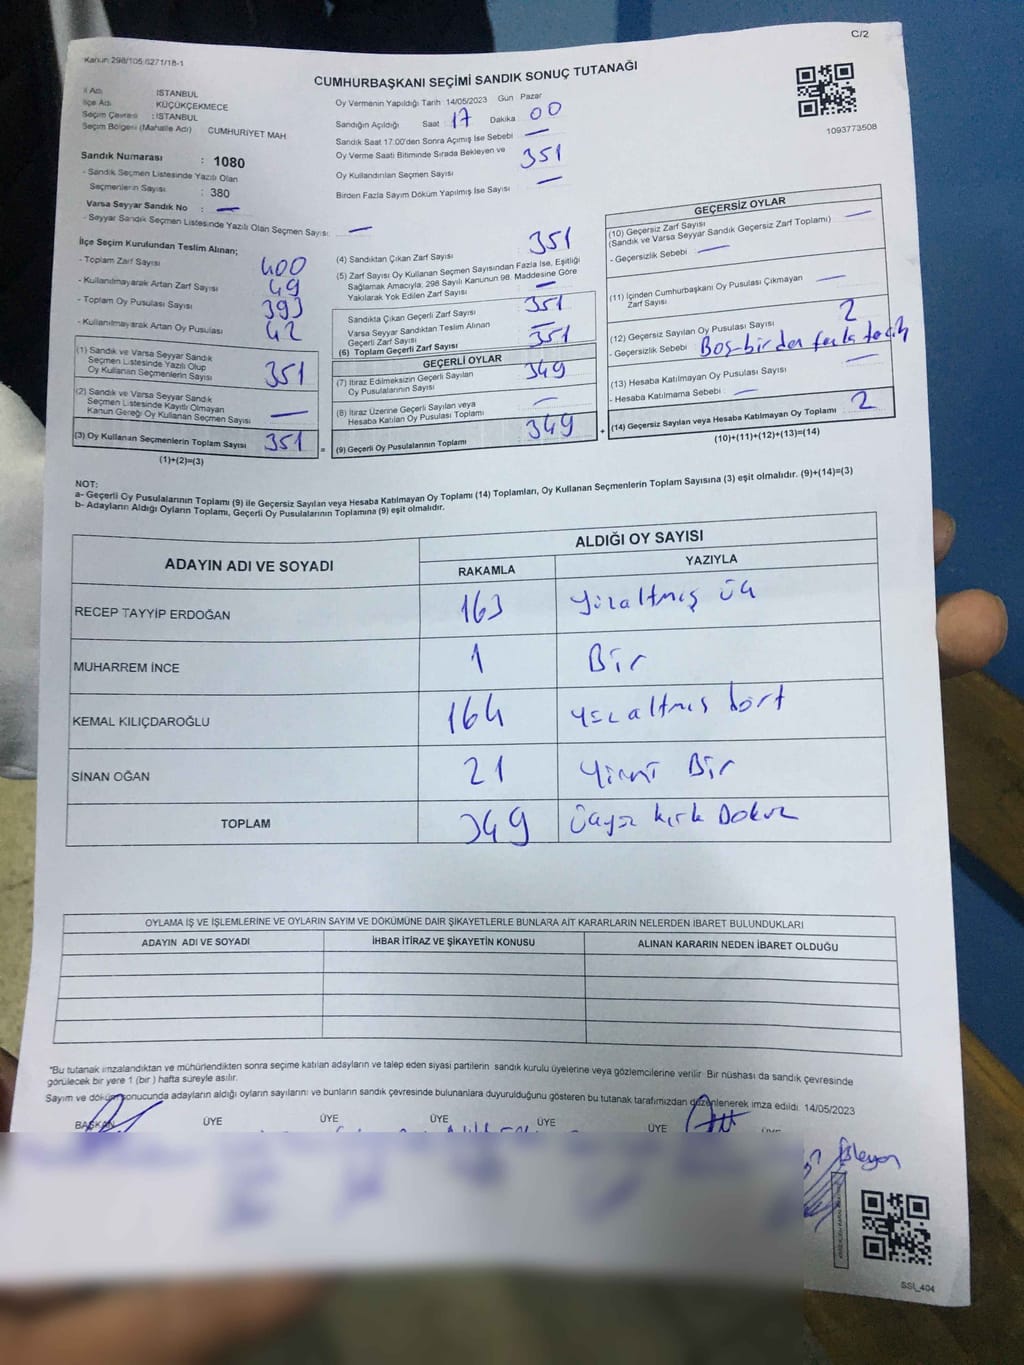 C/2
Kanun 298/105,6271/18-1
CUMHURBAŞKANI SEÇİMİ SANDIK SONUÇ TUTANAĞI
1093773508
İl Adı : İSTANBUL
İlçe Adı : KÜÇÜKÇEKMECE
Seçim Çevresi : İSTANBUL
Seçim Bölgesi (Mahalle Adı) CUMHURİYET MAH.
Sandık Numarası : 1080
- Sandık Seçmen Listesinde Yazılı Olan
Seçmenlerin Sayısı : 380
Varsa Seyyar Sandık No : —
- Seyyar Sandık Seçmen Listesinde Yazılı Olan Seçmen Sayısı: —
Oy Vermenin Yapıldığı Tarih 14/05/2023 Gün Pazar
Sandığın Açıldığı Saat : 17 Dakika : 00
Sandık Saat 17:00'den Sonra Açımış İse Sebebi —
Oy Verme Saati Bitiminde Sırada Bekleyen ve
Oy Kullandırılan Seçmen Sayısı 351
Birden Fazla Sayım Döküm Yapılmış İse Sayısı —
İlçe Seçim Kurulundan Teslim Alınan;
- Toplam Zarf Sayısı 400
- Kullanılmayarak Artan Zarf Sayısı 49
- Toplam Oy Pusulası Sayısı 393
- Kullanılmayarak Artan Oy Pusulası 42
(1) Sandık ve Varsa Seyyar Sandık
Seçmen Listesinde Yazılı Olup
Oy Kullanan Seçmenlerin Sayısı 351
(2) Sandık ve Varsa Seyyar Sandık
Seçmen Listesinde Kayıtlı Olmayan
Kanun Gereği Oy Kullanan Seçmen Sayısı —
(3) Oy Kullanan Seçmenlerin Toplam Sayısı 351
(1)+(2)=(3)
(4) Sandıktan Çıkan Zarf Sayısı 351
(5) Zarf Sayısı Oy Kullanan Seçmen Sayısından Fazla İse, Eşitliği
Sağlamak Amacıyla, 298 Sayılı Kanunun 98. Maddesine Göre
Yakılarak Yok Edilen Zarf Sayısı —
Sandıkta Çıkan Geçerli Zarf Sayısı 351
Varsa Seyyar Sandıktan Teslim Alınan
Geçerli Zarf Sayısı —
(6) Toplam Geçerli Zarf Sayısı 351
GEÇERLİ OYLAR
(7) İtiraz Edilmeksizin Geçerli Sayılan
Oy Pusulalarının Sayısı 349
(8) İtiraz Üzerine Geçerli Sayılan veya
Hesaba Katılan Oy Pusulası Toplamı —
= (9) Geçerli Oy Pusulalarının Toplamı 349
GEÇERSİZ OYLAR
(10) Geçersiz Zarf Sayısı —
(Sandık ve Varsa Seyyar Sandık Geçersiz Zarf Toplamı)
- Geçersizlik Sebebi : —
(11) İçinden Cumhurbaşkanı Oy Pusulası Çıkmayan
Zarf Sayısı —
(12) Geçersiz Sayılan Oy Pusulası Sayısı 2
- Geçersizlik Sebebi : Boş-birden fazla
(13) Hesaba Katılmayan Oy Pusulası Sayısı —
- Hesaba Katılmama Sebebi : —
+ (14) Geçersiz Sayılan veya Hesaba Katılmayan Oy Toplamı 2
(10)+(11)+(12)+(13)=(14)
NOT:
a- Geçerli Oy Pusulalarının Toplamı (9) ile Geçersiz Sayılan veya Hesaba Katılmayan Oy Toplamı (14) Toplamları, Oy Kullanan Seçmenlerin Toplam Sayısına (3) eşit olmalıdır. (9)+(14)=(3)
b- Adayların Aldığı Oyların Toplamı, Geçerli Oy Pusulalarının Toplamına (9) eşit olmalıdır.
ADAYIN ADI VE SOYADI ALDIĞI OY SAYISI
RAKAMLA YAZIYLA
RECEP TAYYİP ERDOĞAN 163 Yüzaltmış üç
MUHARREM İNCE 1 Bir
KEMAL KILIÇDAROĞLU 164 Yüz altmış dört
SİNAN OĞAN 21 Yirmi Bir
TOPLAM 349 Üçyüz kırk Dokuz
OYLAMA İŞ VE İŞLEMLERİNE VE OYLARIN SAYIM VE DÖKÜMÜNE DAİR ŞİKAYETLERLE BUNLARA AİT KARARLARIN NELERDEN İBARET BULUNDUKLARI
ADAYIN ADI VE SOYADI İHBAR İTİRAZ VE ŞİKAYETİN KONUSU ALINAN KARARIN NEDEN İBARET OLDUĞU
"Bu tutanak imzalandıktan ve mühürlendikten sonra seçime katılan adayların ve talep eden siyasi partilerin sandık kurulu üyelerine veya gözlemcilerine verilir. Bir nüshası da sandık çevresinde
görülecek bir yere 1 (bir ) hafta süreyle asılır.
Sayım ve döküm sonucunda adayların aldığı oyların sayılarını ve bunların sandık çevresinde bulunanlara duyurulduğunu gösteren bu tutanak tarafımızdan düzenlenerek imza edildi. 14/05/2023
BAŞKAN ÜYE ÜYE ÜYE ÜYE ÜYE
SSİ_404